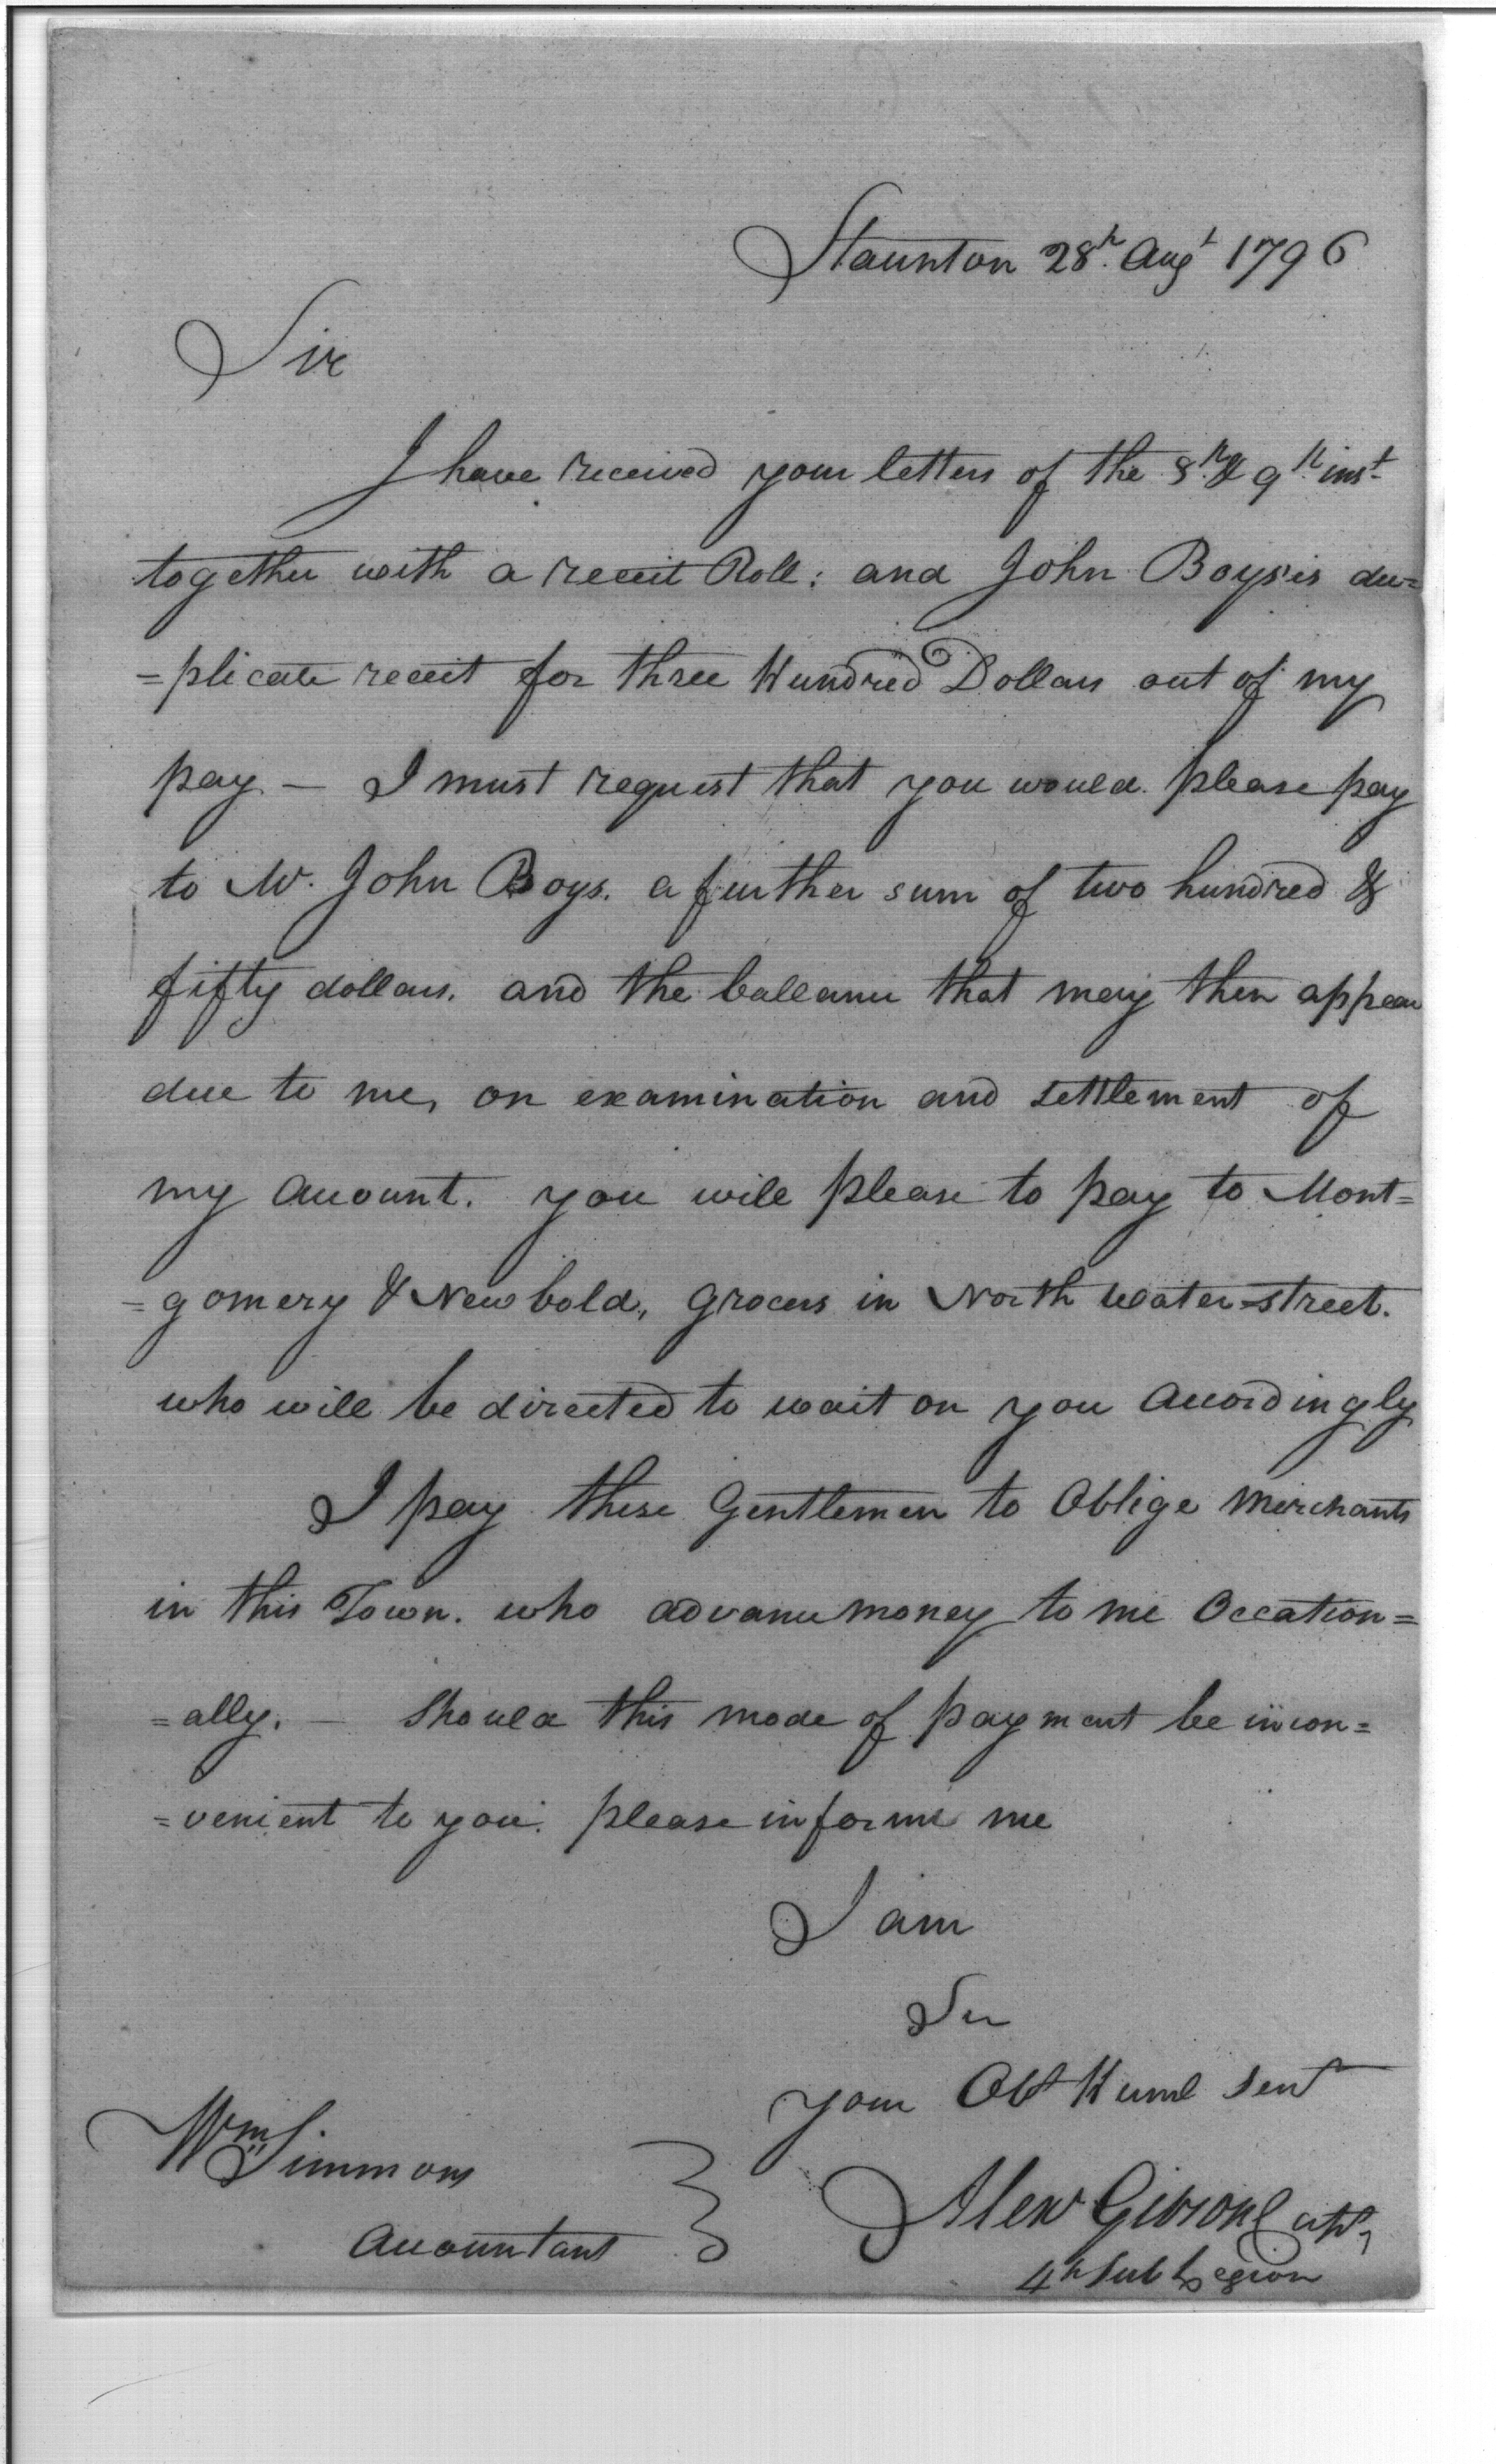 Staunton 28th. Augt 1796
Sir
I have received your letters of the 8th. & 9th. inst.
together with a receit Roll: and John Boys'is du=
=plicate receit for three Hundred Dollars out of my
pay – I must request that you would please pay
to Mr. John Boys. a further sum of two hundred &
fifty dollars. and the ballance that may then appear
due to me, on examination and settlement of
my account. you will please to pay to Mont=
=gomery & Newbold, Grocers in North Water=street.
who will be directed to wait on you accordingly
I pay these Gentlemen to Oblige Merchants
in this Town. who advance money to me Occation=
=ally. – Should this mode of payment be incon=
=venient to you. please informe me
I am
Sir
your Obt Huml Servt
Wm Simmons
Accountant
Alexr Gibson Captn
4th Sub Legion